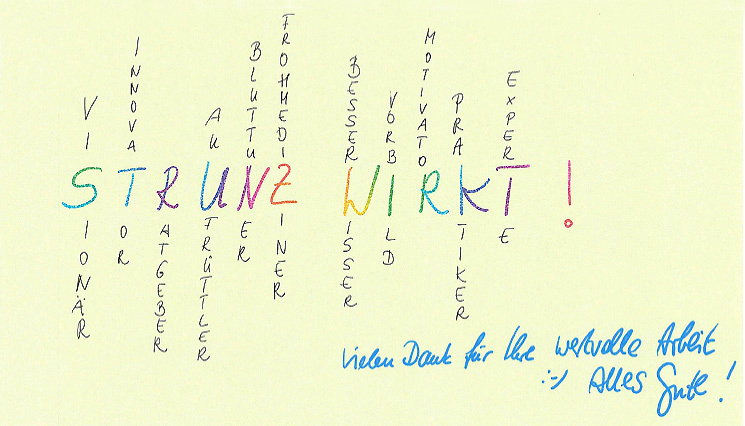 STRUNZ WIRKT!
VISIONÄR
INNOVATOR
RATGEBER
AUFRÜTTLER
BLUTTUNER
FROHMEDIZINER
BESSERWISSER
VORBILD
MOTIVATOR
PRAKTIKER
EXPERTE
Vielen Dank für Ihre wertvolle Arbeit
:-) Alles Gute!